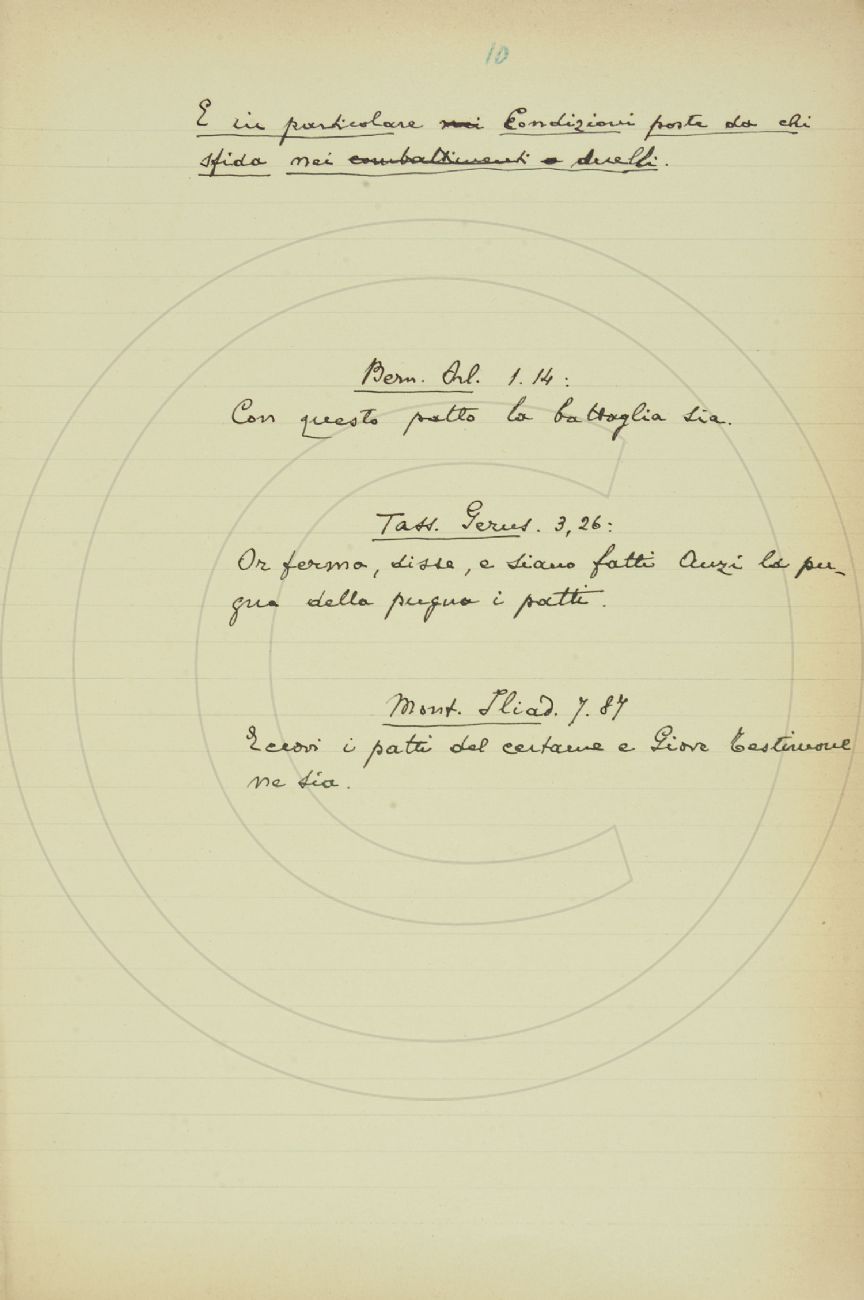 10
E in particolare nei Condizioni poste da chi
sfida nei combattimenti o duelli.
Bern. Orl. 1. 14:
Con questo patto la battaglia sia.
Tass. Gerus. 3, 26:
Or ferma, disse, e siano fatti Anzi la pu-
gna della pugna i patti.
Mont. Iliad. 7. 87
Eccovi i patti del certame e Giove testimone
ne sia.